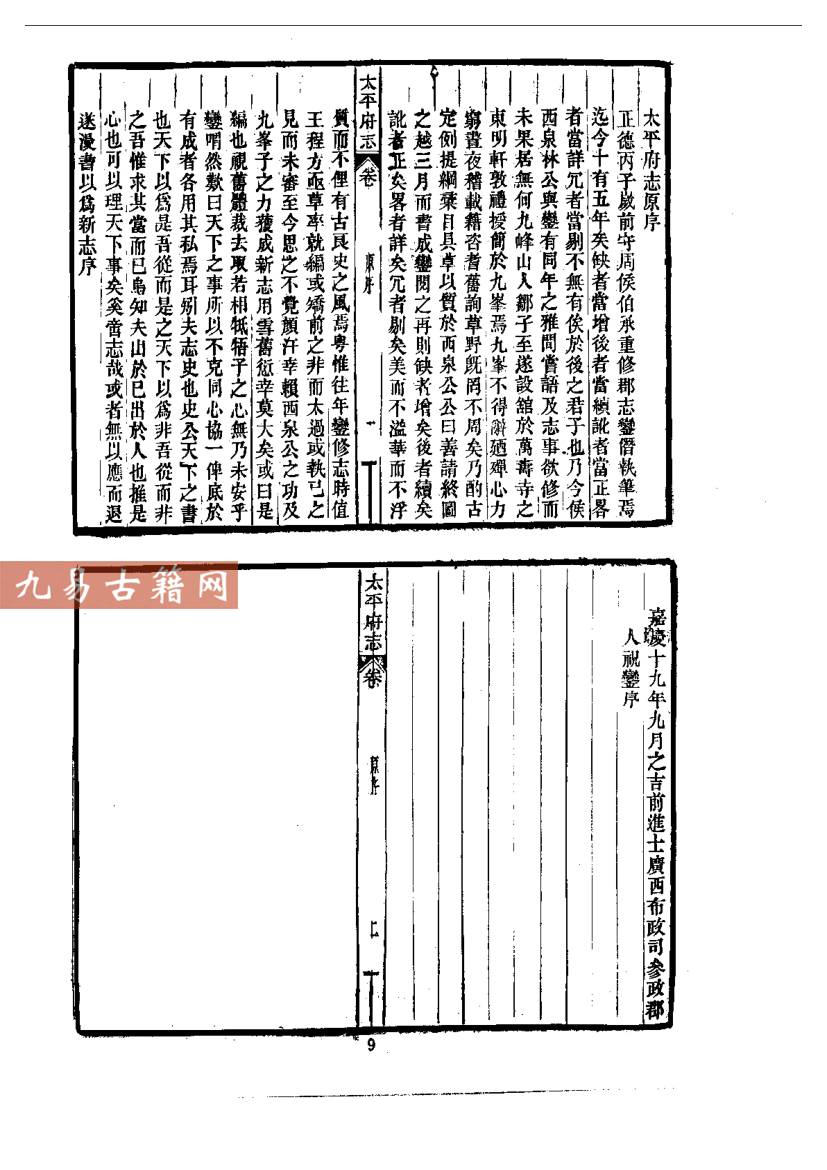 太平府志原序
正德丙子歲前守周侯伯承重修郡志鑾僭執筆焉
迄今十有五年矣缺者當增後者當續訛者當正畧
者當詳冗者當剔不無有俟於後之君子也乃今侯
西泉林公與鑾有同年之雅間嘗語及志事欲修而
未果居無何九峰山人鄒子至遂設舘於萬壽寺之
東明軒敦禮授簡於九峯焉九峯不得辭廼殫心力
窮晝夜稽載籍咨耆舊詢草野旣罔不周矣乃酌古
定例提綱槩目具草以質於西泉公公曰善請終圖
之越三月而書成鑾閱之再則缺者增矣後者續矣
訛者正矣畧者詳矣冗者剔矣美而不溢華而不浮
太平府志
卷
原序
一
質而不俚有古良史之風焉粵惟往年鑾修志時值
王程方亟草率就編或矯前之非而太過或執己之
見而未審至今思之不覺顏汗幸賴西泉公之功及
九峯子之力獲成新志用雪舊愆幸莫大矣或曰是
編也視舊體裁去取若相牴牾子之心無乃未安乎
鑾喟然歎曰天下之事所以不克同心協一俾底於
有成者各用其私焉耳矧夫志史也史公天下之書
也天下以爲是吾從而是之天下以爲非吾從而非
之吾惟求其當而已烏知夫出於已出於人也推是
心也可以理天下事矣奚啻志哉或者無以應而退
遂漫書以爲新志序
嘉慶十九年九月之吉前進士廣西布政司參政郡
人祝鑾序
太平府志
卷
原序
二
9
九易古籍网